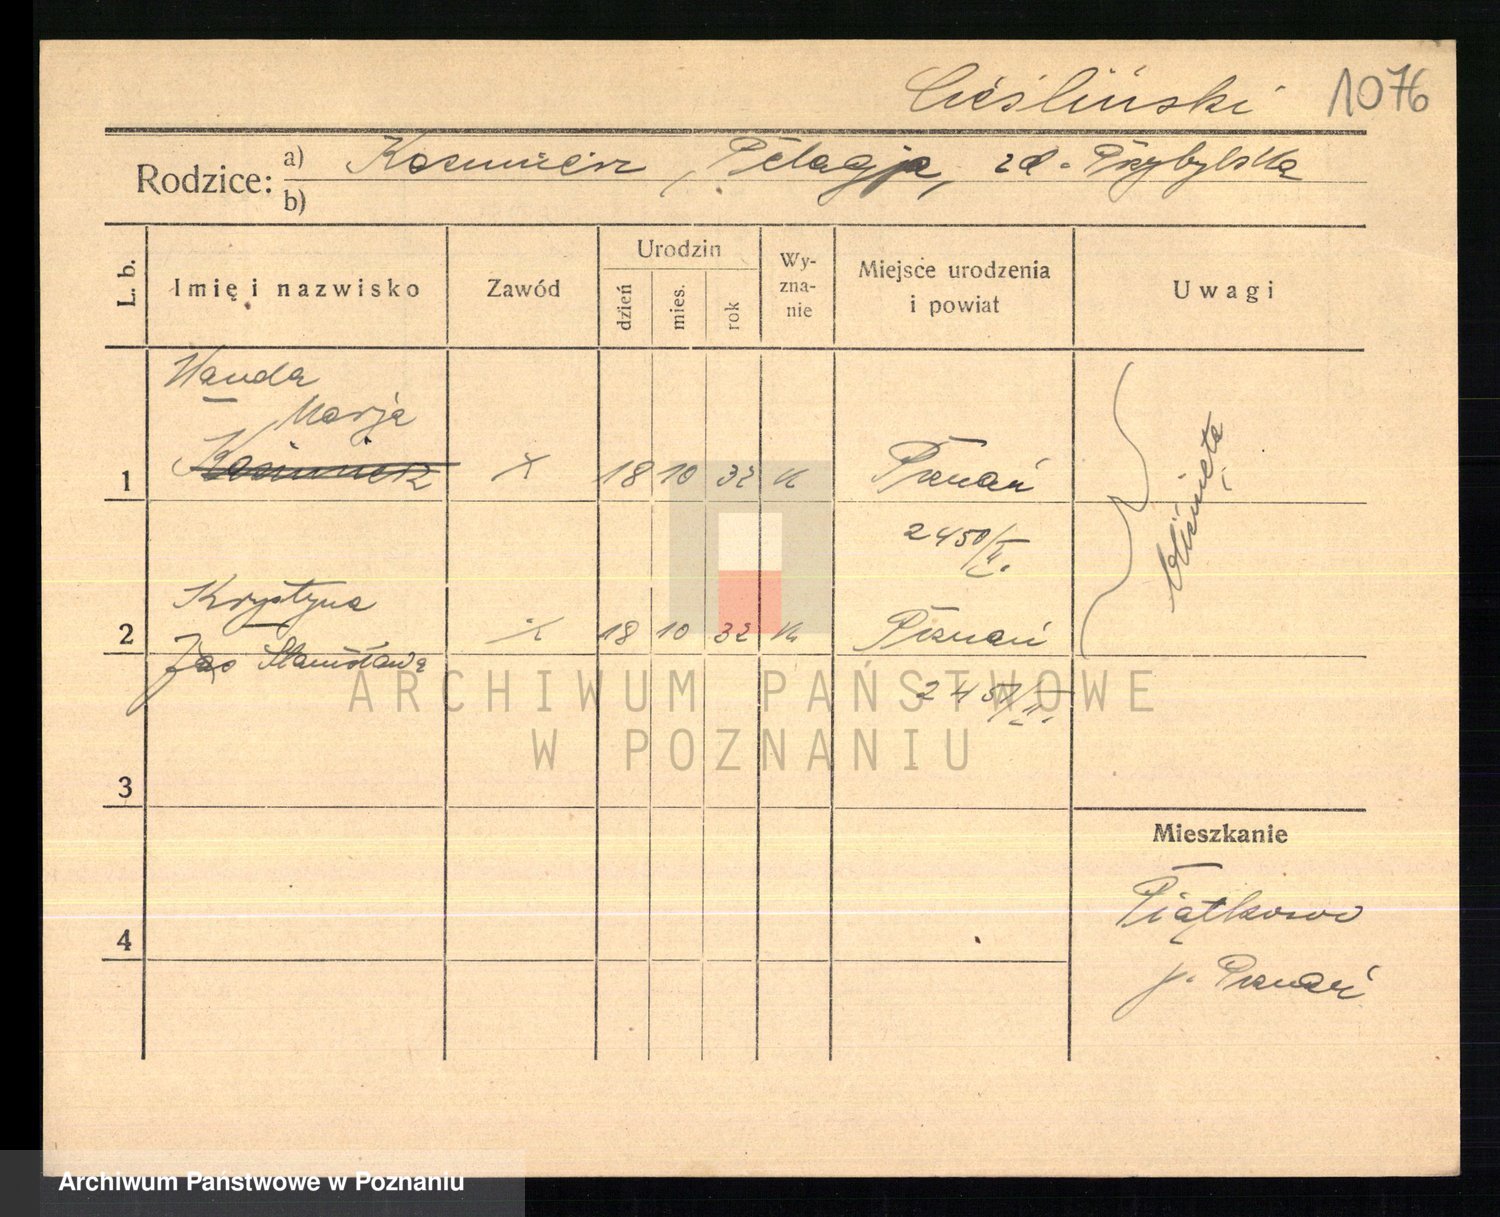 Cieśliński 1076
Rodzice: a) Kazimierz, Pelagja, zd. Przybylska
b)
L. b. Imię i nazwisko Zawód Urodzin dzień mies. rok Wy-zna-nie Miejsce urodzenia i powiat Uwagi
Wanda
Marja
1 Kazimierz X 18 10 32 K Poznań
2450/II.
Krystyna
2 X 18 10 32 K Poznań
Stanisława
2451/II.
bliźnięta
ARCHIWUM PAŃSTWOWE
W POZNANIU
3
Mieszkanie
Piątkowo
4
p. Poznań
Archiwum Państwowe w Poznaniu